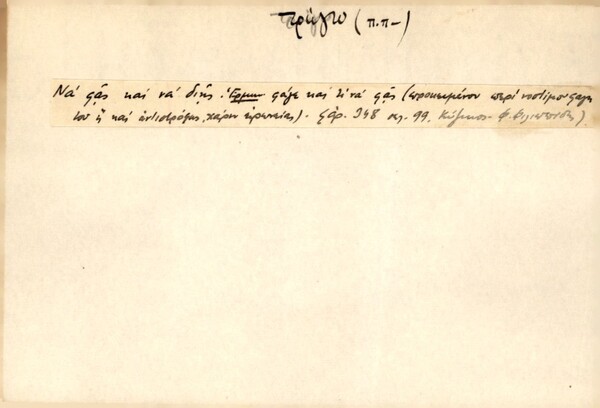 τρώγω (π.π-)
Νά φᾶς καί νά διῆς. Ἑρμην φάγε καί τί νά φᾶς (προκειμένου περί νοστίμου φαγη
του ἤ καί ἀντιστρόφως, χάριν εἰρωνείας). Χφ. 348 σελ. 99. Κύζικος - Φ. Φιλιππίδης)